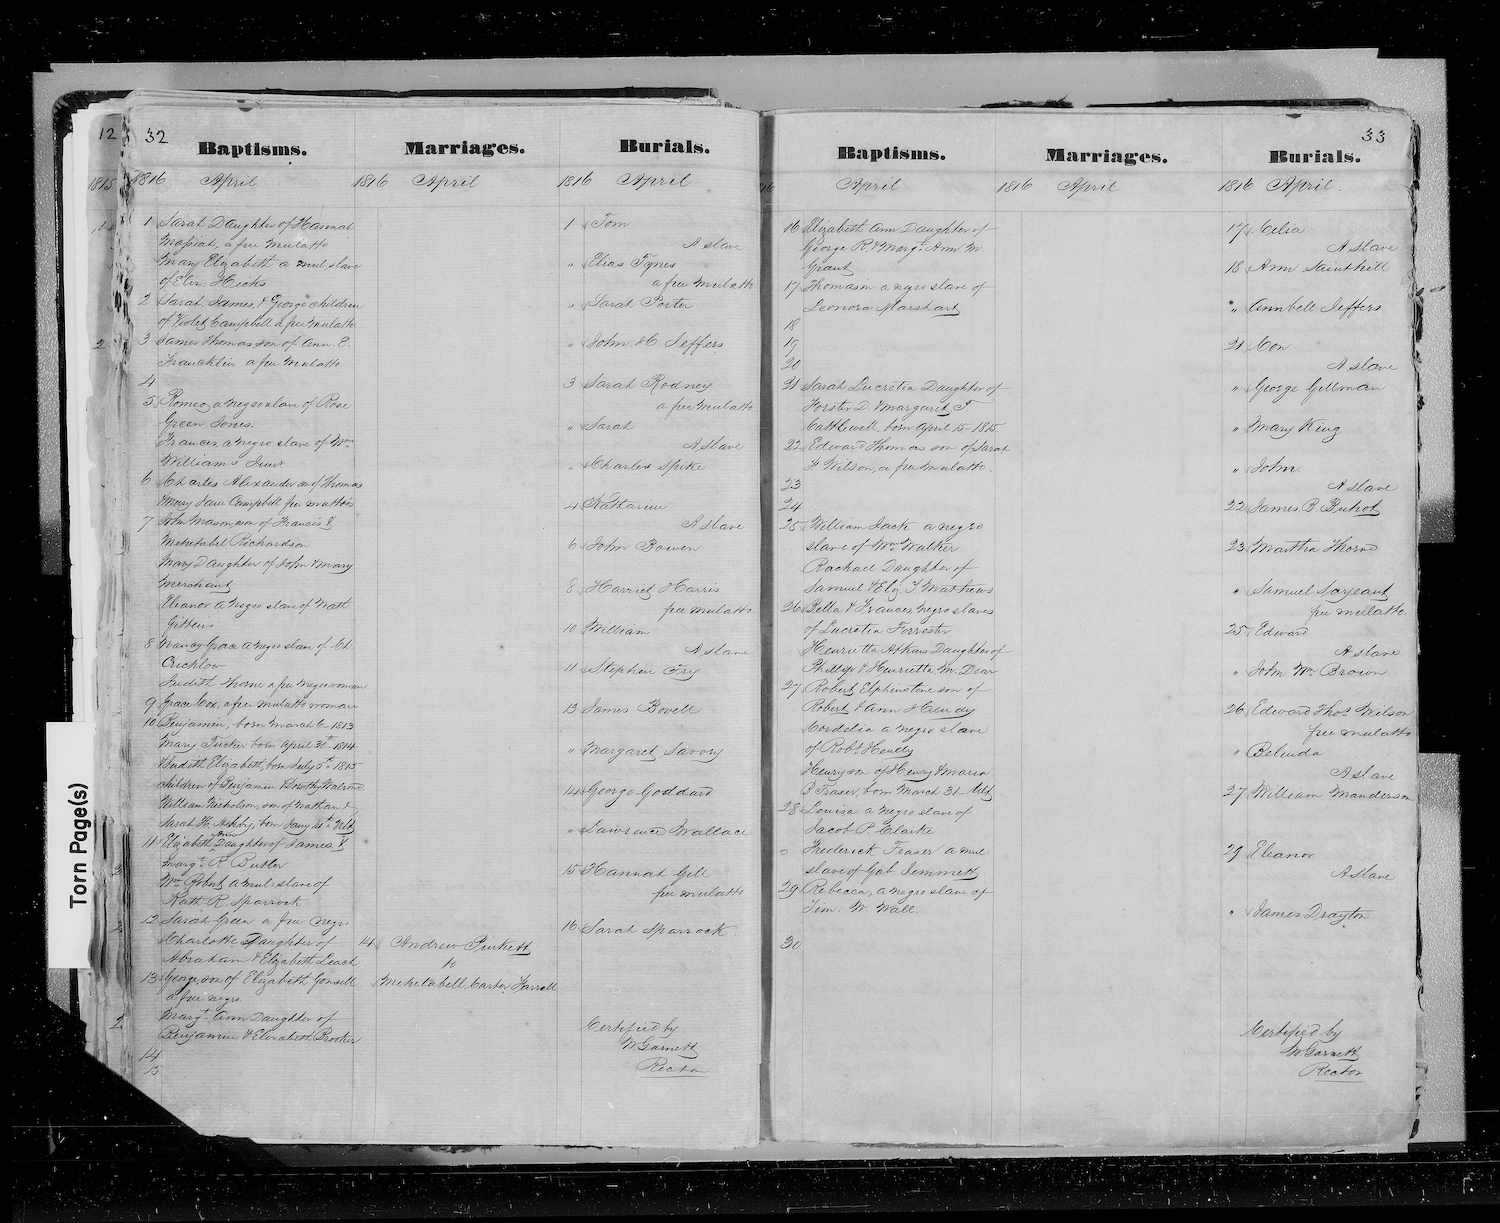 12
1815
32
Baptisms.
1816 April
1 Sarah Daughter of Hannah
Massiah, a free mulatto
Mary Elizabeth a mul. slave
of Eliz. Hicks
2 Sarah James, & George children
of Violet Campbell a free mulatto
3 James Thomas son of Ann E.
Francklin a free mulatto
4
5 Romeo, a negro slave of Rose
Green Jones.
Frances, a negro slave of Wm
Williams Junr
6 Charles Alexander son of Thomas
Mary Jane Campbell free mulattoes
7 John Mason, son of Francis &
Mehetabel Richardson
Mary Daughter of John & Mary
Merchant
Eleanor a Negro slave of Nath
Gittens
8 Nancy Grace a negro slave of Ch.
Crichlow
Judith Thorne a free Negro woman
9 Grace Cox, a free mulatto woman
10 Benjamin, born March 6 1813
Mary Tucker born April 3d 1814
Judith Elizabeth, born July 5th 1815
children of Benjamin & Dorothy Watson
William Nicholson, son of Nathan &
Sarah H. Ashby, born Jany
11 Elizabeth Ann Daughter of James &
Margt P. Butler
Wm Robert a mul. slave of
Kath R. Sparrock
12 Sarah Green a free Negro
Charlotte Daughter of
Abraham & Elizabeth Leach
13 George, son of Elizabeth Gonsell
a free negro
Margt Ann Daughter of
Benjamin & Elizabeth Brooker
14
15
Marriages.
1816 April
14 Andrew Pinkett
to
Mehetabell Carter Farrell
Burials.
1816 April
1 Tom
A slave
" Elias Tynes
a free mulatto
" Sarah Porter
" John H. Jeffers
3 Sarah Rodney
a free mulatto
" Sarah
A slave
" Charles Spike
4 Katharine
A slave
6 John Bowen
8 Harriet Harris
free mulatto
10 William
A slave
11 Stephen Fry
13 James Bovell
" Margaret Savory
14 George Goddard
" Lawrence Wallace
15 Hannah Gill
free mulatto
16 Sarah Sparrock
Certified by
W Garnett
Rector
33
Baptisms.
April
16 Elizabeth Ann Daughter of
George R & Margt Ann M
Grant
17 Thomasin a negro slave of
Leonora Marshart
18
19
20
21 Sarah Lucretia Daughter of
Forster D. & Margaret T
Cattlewell, born April 15 1815
22 Edward Thomas son of Sarah
F Wilson, a free mulatto.
23
24
25 William Jack a negro
slave of Wm Walker
Rachael Daughter of
Samuel & Eliz. T Mathews
26 Bella & Frances, Negro slaves
of Lucretia Forrester
Henrietta Athans Daughter of
Phillip & Henrietta M. Dear
27 Robert Elphinstone son of
Robert & Ann Hendy
Cordelia a negro slave
of Robt Hendy
Henry son of Henry & Maria
P Fraser, born March 31
28 Louisa a negro slave of
Jacob P. Clarke
Frederick Fraser a mul
slave of Gab Jemmett
29 Rebecca, a negro slave of
Tim. W. Wall
30
Marriages.
1816 April
Burials.
1816 April.
17 Celia
A slave
18 Ann Sainthill
" Annbell Jeffers
21 Con
A slave
" George Gillman
" Mary King
" John
A slave
22 James B Butcher
23 Martha Thorne
" Samuel Sargeant
free mulatto
25 Edward
A slave
" John Wm Brown
26 Edward Thos Wilson
free mulatto
" Belinda
A slave
27 William Manderson
29 Eleanor
A slave
" James Drayton
Certified by
W Garnett
Rector
Torn Page(s)